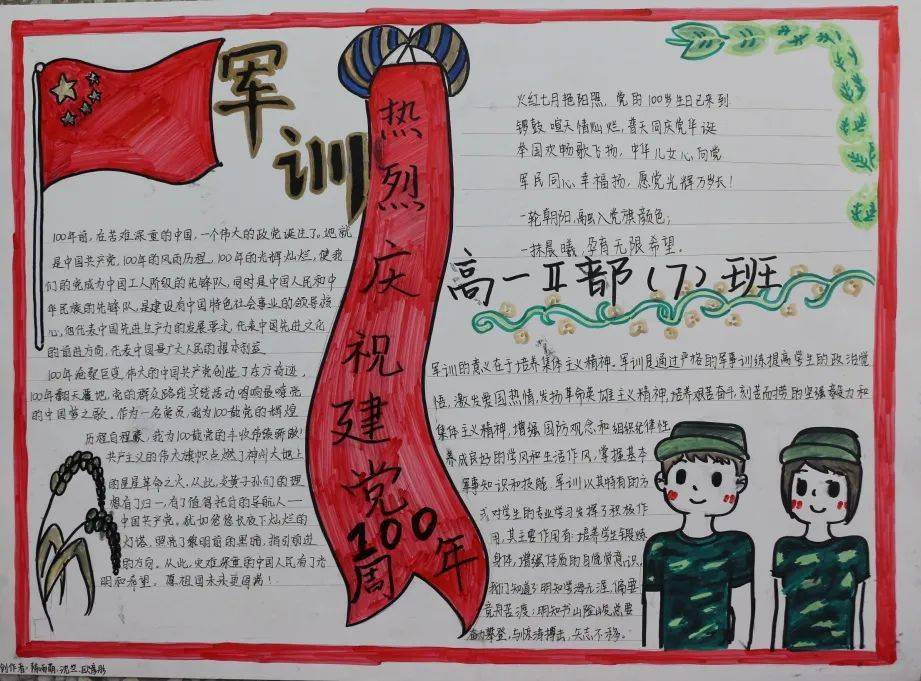 军训
热烈庆祝建党100周年
火红七月艳阳照，党的100岁生日已来到
锣鼓喧天情灿烂，普天同庆党华诞
举国欢畅歌飞扬，中华儿女心向党
军民同心幸福扬，愿党光辉万岁长！
一轮朝阳，融入党旗颜色；
一抹晨曦，孕育无限希望。
高一Ⅱ部（7）班
100年前，在苦难深重的中国，一个伟大的政党诞生了。她就
是中国共产党，100年的风雨历程，100年的光辉灿烂，使我
们的党成为中国工人阶级的先锋队，同时是中国人民和中
华民族的先锋队，是建设有中国特色社会事业的领导核
心，他代表中国先进生产力的发展要求，代表中国先进文化
的前进方向，代表中国最广大人民的根本利益
100年沧桑巨变，伟大的中国共产党创造了东方奇迹，
100年翻天覆地，党的群众路线实践活动唱响最嘹亮
的中国梦之歌。作为一名党员，我为100龄党的辉煌
历程自程豪，我为100龄党的丰收伟绩骄傲！
共产主义的伟大旗帜点燃了神州大地上
的星星革命之火，从此，炎黄子孙们的理
想有了归一，有了值得托付的导航人——
中国共产党。犹如悠悠长夜下灿烂的
灯塔，照亮了黎明前的黑暗，指引前进
的方向，从此，灾难深重的中国人民有了光
明和希望。愿祖国未来更圆满！
军训的意义在于培养集体主义精神。军训是通过严格的军事训练提高学生的政治觉
悟，激发爱国热情，发扬革命英雄主义精神，培养艰苦奋斗，刻苦耐劳的坚强毅力和
集体主义精神，增强国防观念和组织纪律性
养成良好的学风和生活作风，掌握基本
军事知识和技能。军训以其特有的方
式对学生的专业学习发挥了积极作
用，其主要作用有：培养学生锻炼
身体，增强体质的自觉意识，
我们知道了明知学海无涯，偏要
竟舟苦渡；明知书山险峻，总要
攀登，与惊涛搏击，矢志不移。
创作者：陈雨萌、沈